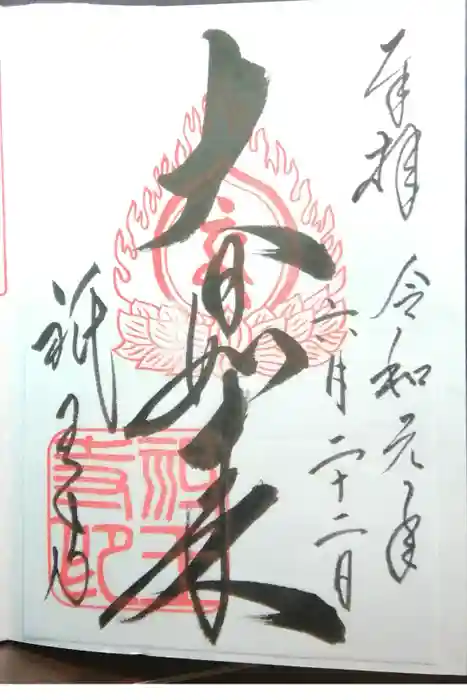 奉拝
令和元年
六月二十二日
大日如来
祇王寺
祇王寺印